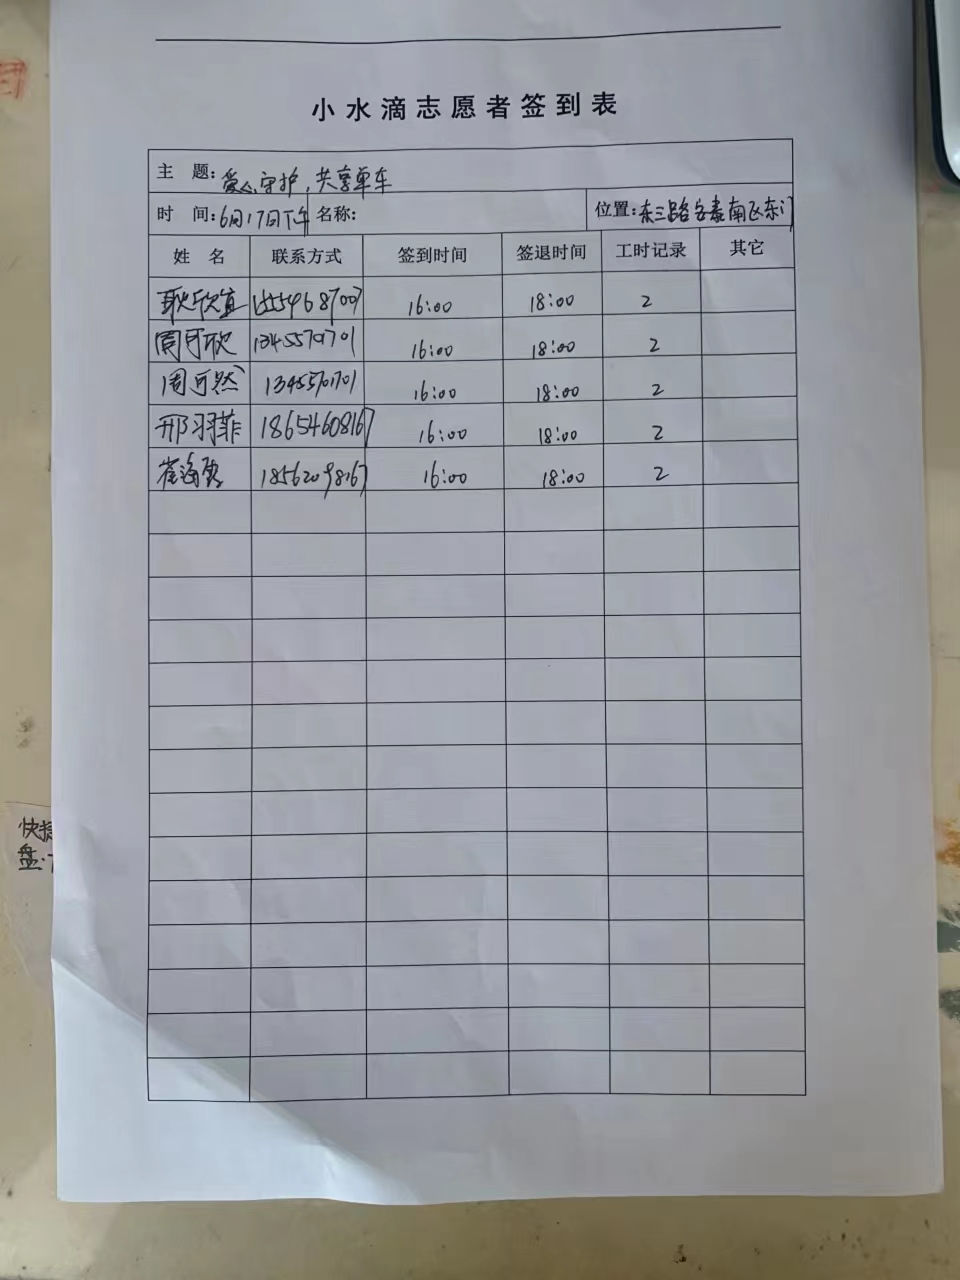 小水滴志愿者签到表
主 题: 爱心守护,共享单车
时 间: 6月17日下午 名称: 位置: 东三路安泰南区东门
姓 名 联系方式 签到时间 签退时间 工时记录 其它
耿欣宜 15554687007 16:00 18:00 2
周可欣 16:00 18:00 2
周可然 16:00 18:00 2
邢羽菲 18654608167 16:00 18:00 2
崔海霞 18562098167 16:00 18:00 2
快捷
盘.